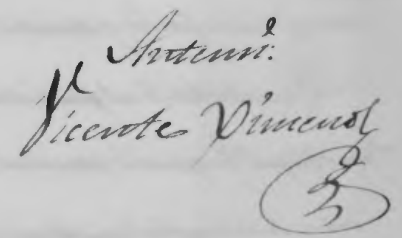 Antemi.
Vicente Ximenez